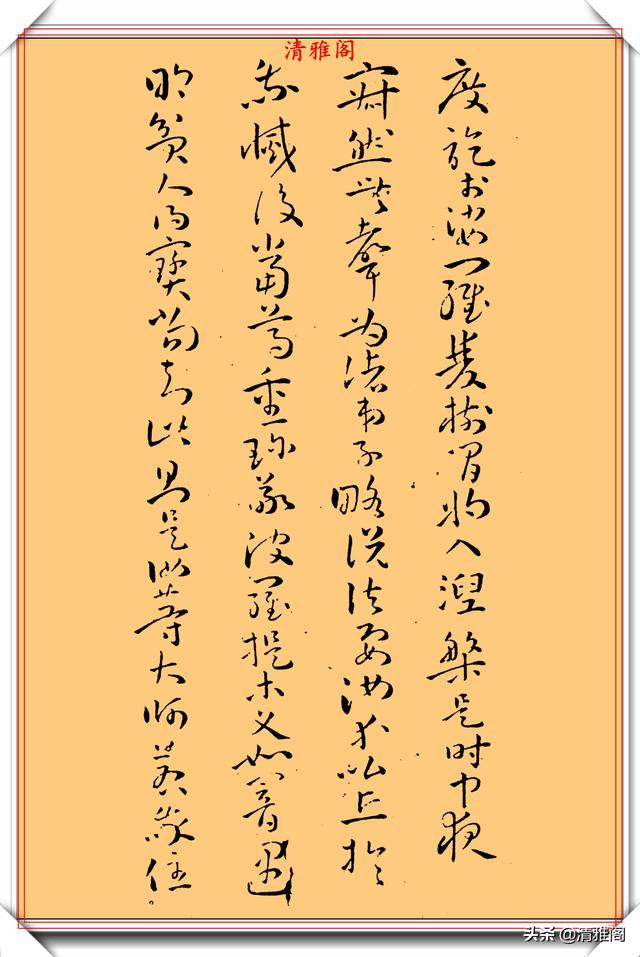 清雅阁
度訖於娑羅雙樹間將入涅槃是時中夜
寂然無聲為諸弟子略說法要汝等比丘於
我滅後當尊重珍敬波羅提木叉如暗遇
明貧人得寶當知此則是汝等大師若我住
头条 @清雅阁